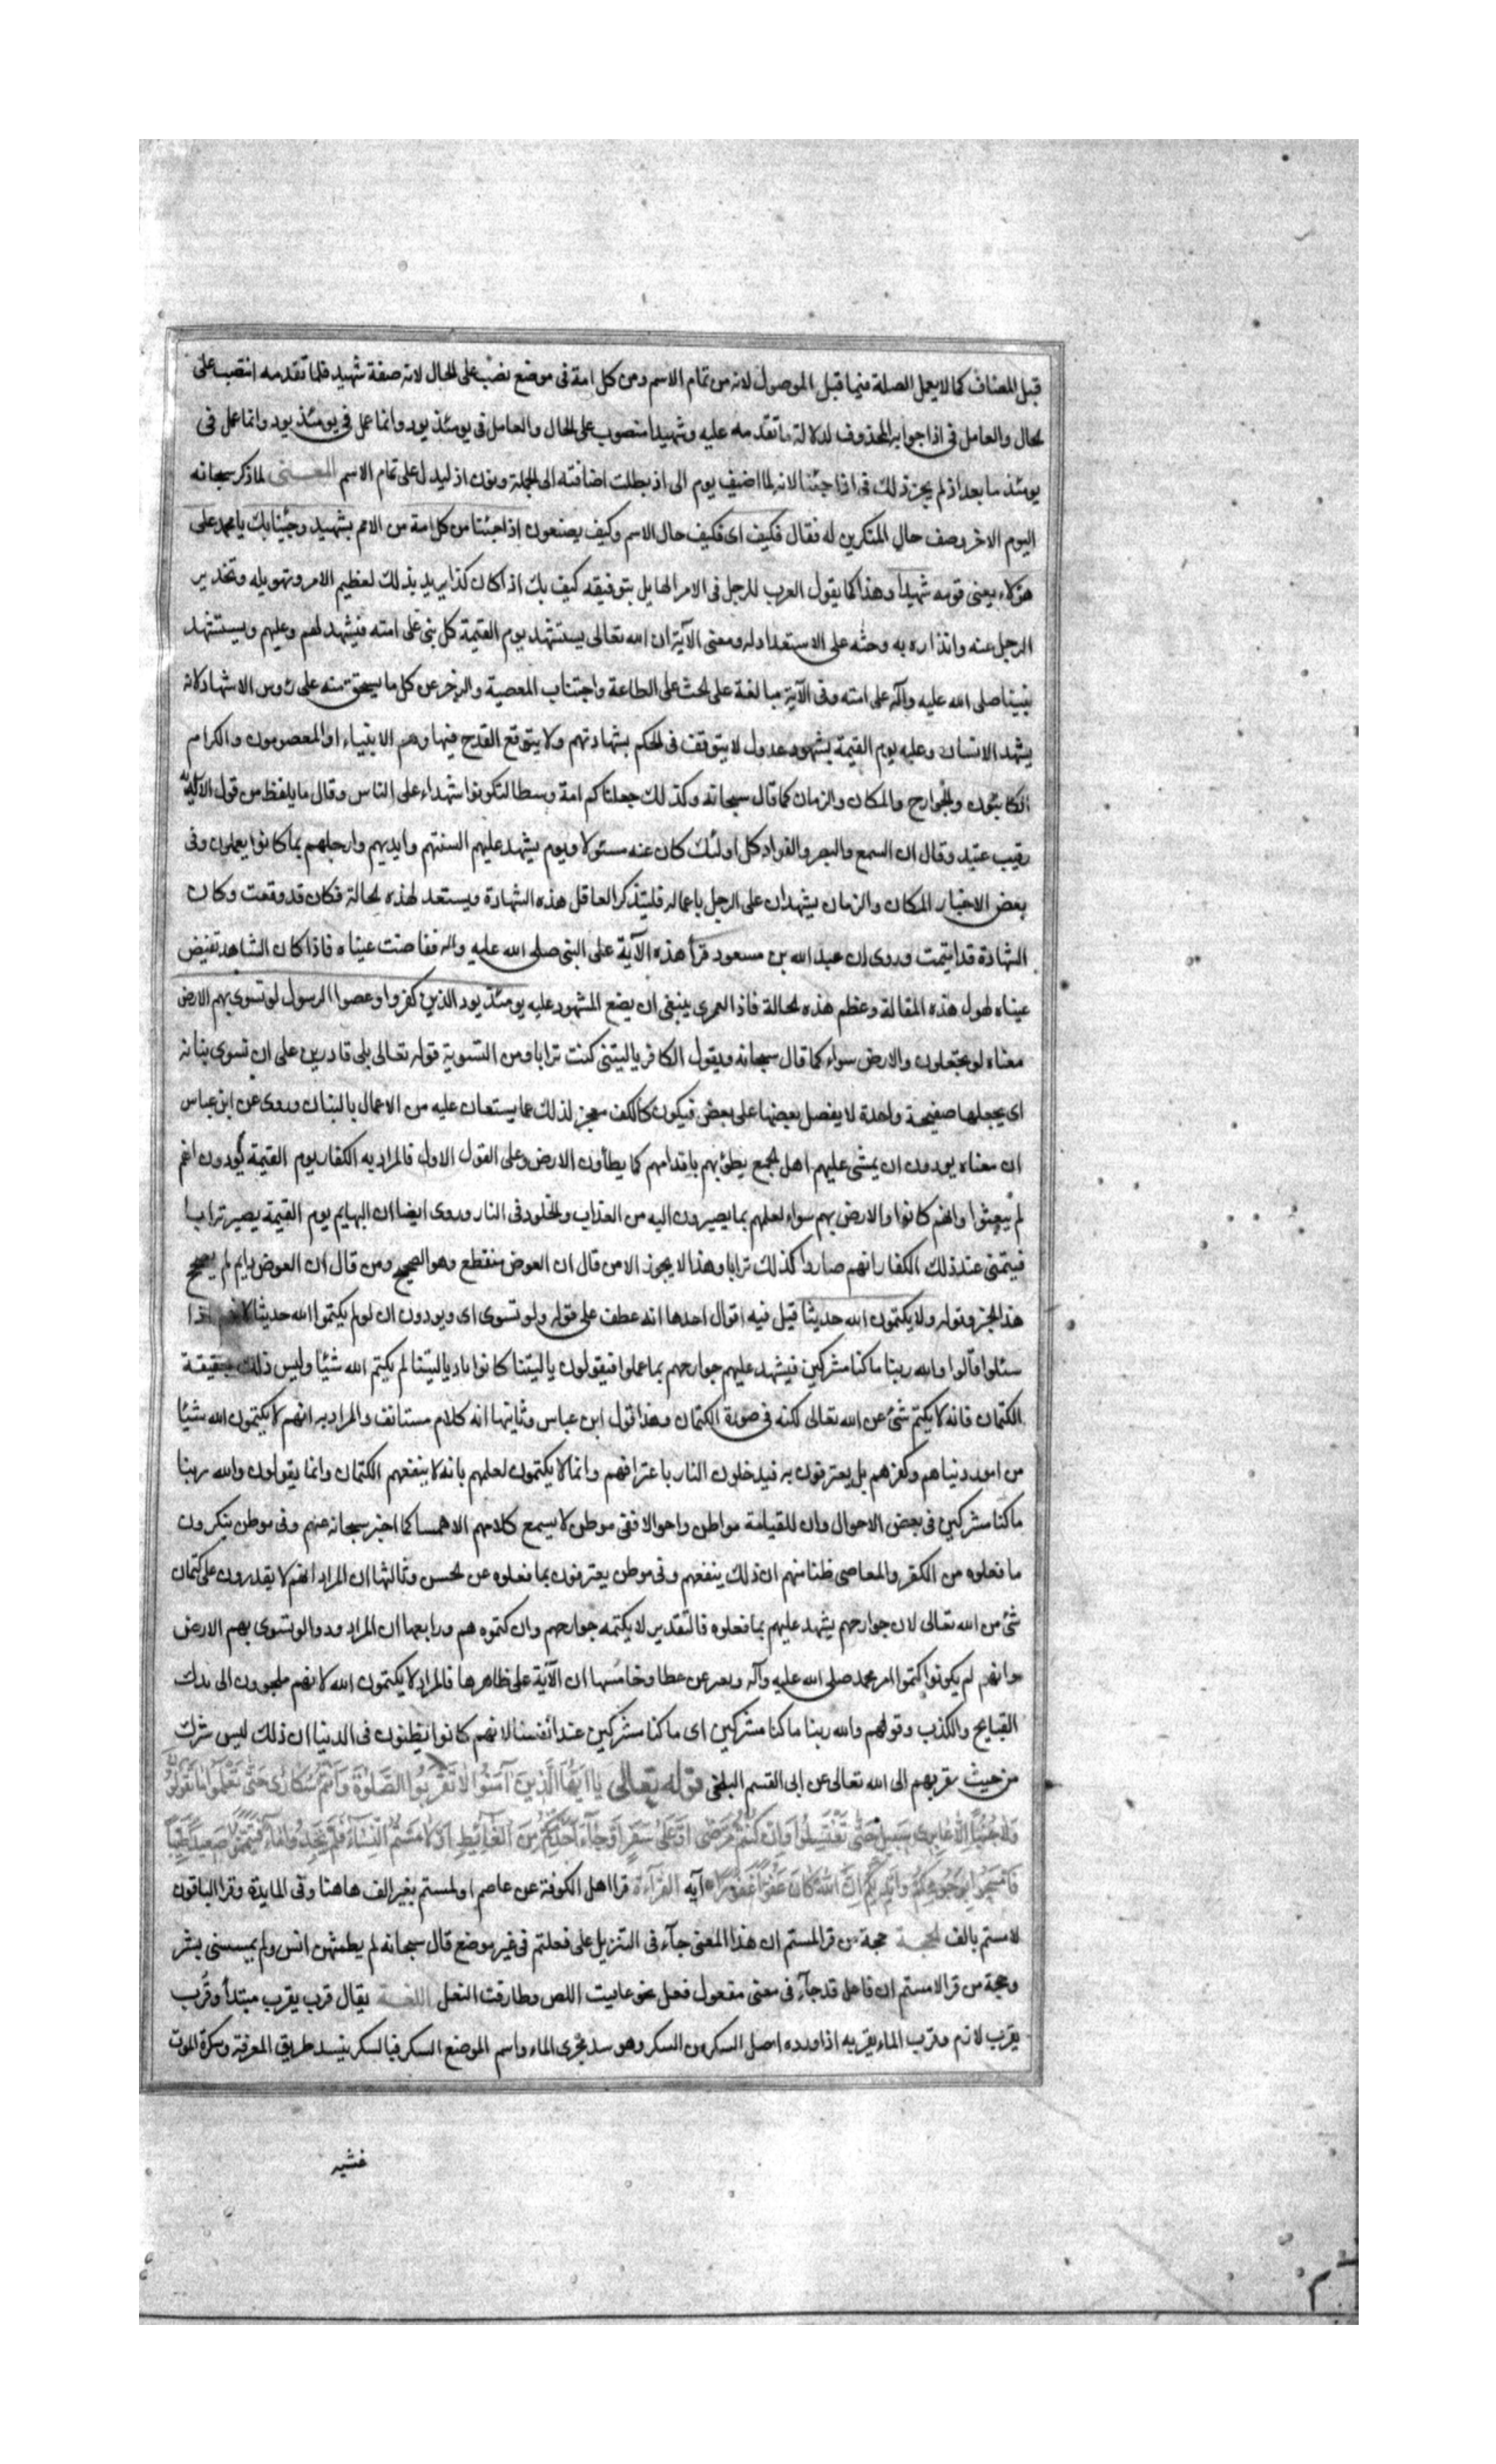 قبل المضاف كما لا يعمل الصلة فيما قبل الموصول لانه من تمام الاسم ومن كل امة فى موضع نصب على الحال لانه صفة شهيد فلما تقدمه انتصب على
الحال والعامل فى اذا جوابه المحذوف لدلالة ما تقدمه عليه وشهيدا منصوب على الحال والعامل فى يومئذ يود وانما عمل فى يومئذ يود وانما عمل فى
يومئذ ما بعد اذ لم يجز ذلك فى اذا جئنا لانه لما اضيف يوم الى اذ بطلت اضافته الى الجملة ونون اذ ليدل على تمام الاسم المعـنى لما ذكر سبحانه
اليوم الاخر وصف حال المنكرين له فقال فكيف اى فكيف حال الاسم وكيف يصنعون اذا جئنا من كل امة من الامم بشهيد وجئنا بك يا محمد على
هؤلاء يعنى قومه شهيدا وهذا كما يقول العرب للرجل فى الامر الهايل بتوقيفه كيف بك اذا كان كذا يريد بذلك لعظيم الامر وتهويله وتحذير
الرجل عنه وانذاره به وحثه على الاستعداد له ومعنى الآية ان الله تعالى يستشهد يوم القيمة كل نبى على امته فيشهد لهم وعليهم ويستشهد
نبينا صلى الله عليه وآله على امته وفى الآية مبالغة على الحث على الطاعة واجتناب المعصية والزجر عن كل ما يستحق منه على رؤس الاشهاد لانه
يشهد الانسان وعليه يوم القيمة بشهود عدول لا يتوقف فى الحكم بشهادتهم ولا يتوقع القدح فيها وهم الانبياء او المعصومون والكرام
الكاتبون والجوارح والمكان والزمان كما قال سبحانه وكذلك جعلناكم امة وسطا لتكونوا شهداء على الناس وقال ما يلفظ من قول الا لديه
رقيب عتيد وقال ان السمع والبصر والفواد كل اولئك كان عنه مسئولا ويوم يشهد عليهم السنتهم وايديهم وارجلهم بما كانوا يعملون وفى
بعض الاخبار المكان والزمان يشهدان على الرجل باعماله فليتذكر العاقل هذه الشهادة ويستعد لهذه الحالة فكان قد وقعت وكان
الشهادة قد اقيمت وروى ان عبد الله بن مسعود قرأ هذه الآية على النبى صلى الله عليه واله ففاضت عيناه فاذا كان الشاهد تفيض
عيناه لهول هذه المقالة وعظم هذه الحالة فاذا لعمرى ينبغى ان يضع المشهود عليه يومئذ يود الذين كفروا وعصوا الرسول لو تسوى بهم الارض
معناه لو يجعلون والارض سواء كما قال سبحانه ويقول الكافر يا ليتنى كنت ترابا ومن التسوية قوله تعالى بلى قادرين على ان نسوى بنانه
اى يجعلها صفيحة واحدة لا يفصل بعضها على بعض فيكون كالكف معجز لذلك عما يستعان عليه من الاعمال بالبنان وروى عن ابن عباس
ان معناه يودون ان يمشى عليهم اهل الجمع يطؤنهم باقدامهم كما يطأون الارض وعلى القول الاول فالمراد به الكفار يوم القيمة يودون انهم
لم يبعثوا وانهم كانوا والارض بهم سواء لعلمهم بما يصيرون اليه من العذاب والخلود فى النار وروى ايضا ان البهايم يوم القيمة يصير ترابا
فيتمنى عند ذلك الكفار انهم صاروا كذلك ترابا وهذا لا يجوز الا من قال ان العوض منقطع وهو الصحيح ومن قال ان العوض دايم لم يصحح
هذا الخبر وقوله ولا يكتمون الله حديثا قيل فيه اقوال احدها انه عطف على قوله ولو تسوى اى ويودون ان لو لم يكتموا الله حديثا لانهم اذا
سئلوا قالوا والله ربنا ما كنا مشركين فيشهد عليهم جوارحهم بما عملوا فيقولون يا ليتنا كانوا يا ليتنا لم يكتم الله شيئا وليس ذلك بحقيقة
الكتمان فانه لا يكتم شئ عن الله تعالى لكنه فى صورة الكتمان وهذا قول ابن عباس وثانيها انه كلام مستانف والمراد به انهم لا يكتمون الله شيئا
من امور دنياهم وكفرهم بل يعترفون به فيدخلون النار باعترافهم وانما لا يكتمون لعلمهم بانه لا ينفعهم الكتمان وانما يقولون والله ربنا
ما كنا مشركين فى بعض الاحوال وان للقيامة مواطن واحوالا ففى موطن لا يسمع كلامهم الا همسا كما اخبر سبحانه عنهم وفى موطن ينكرون
ما فعلوه من الكفر والمعاصى ظنا منهم ان ذلك ينفعهم وفى موطن يعترفون بما فعلوه عن الحسن وثالثها ان المراد انهم لا يقدرون على كتمان
شئ من الله تعالى لان جوارحهم يشهد عليهم بما فعلوه فالتقدير لا يكتمه جوارحهم وان كتموه هم ورابعها ان المراد ودوا لو تسوى بهم الارض
وانهم لم يكونوا كتموا امر محمد صلى الله عليه وآله وبعثه عن عطا وخامسها ان الآية على ظاهرها فالمراد لا يكتمون الله لانهم ملجوون الى ترك
القبايح والكذب وقولهم والله ربنا ما كنا مشركين اى ما كنا مشركين عند انفسنا لانهم كانوا يظنون فى الدنيا ان ذلك ليس بشرك
من حيث يقربهم الى الله تعالى عن ابى القسم البلخى قوله تعالى يا ايها الذين آمنوا لا تقربوا الصلوة وانتم سكارى حتى تعلموا ما تقولون
ولا جنبا الا عابرى سبيل حتى تغتسلوا وان كنتم مرضى او على سفر او جاء احد منكم من الغايط او لامستم النساء فلم تجدوا ماء فتيمموا صعيدا طيبا
فامسحوا بوجوهكم وايديكم ان الله كان عفوا غفورا آيه القرآءة قرا اهل الكوفة عن عاصم او لمستم بغير الف هاهنا وفى المايدة وقرا الباقون
لامستم بالف الحجـة حجة من قرا لمستم ان هذا المعنى جآء فى التنزيل على فعلتم فى غير موضع قال سبحانه لم يطمثهن انس ولم يمسسنى بشر
وحجة من قرا لامستم ان فاعل قد جآء فى معنى مفعول فعل نحو عاقبت اللص وطارقت النعل اللغـة يقال قرب يقرب مبتدأ وقرب
يقرب لازم وقرب الماء يقربه اذا ورده اصل السكر من السكر وهو سد مجرى الماء واسم الموضع السكر فبالسكر ينسد طريق المعرفة وسكرة الموت
غشيه